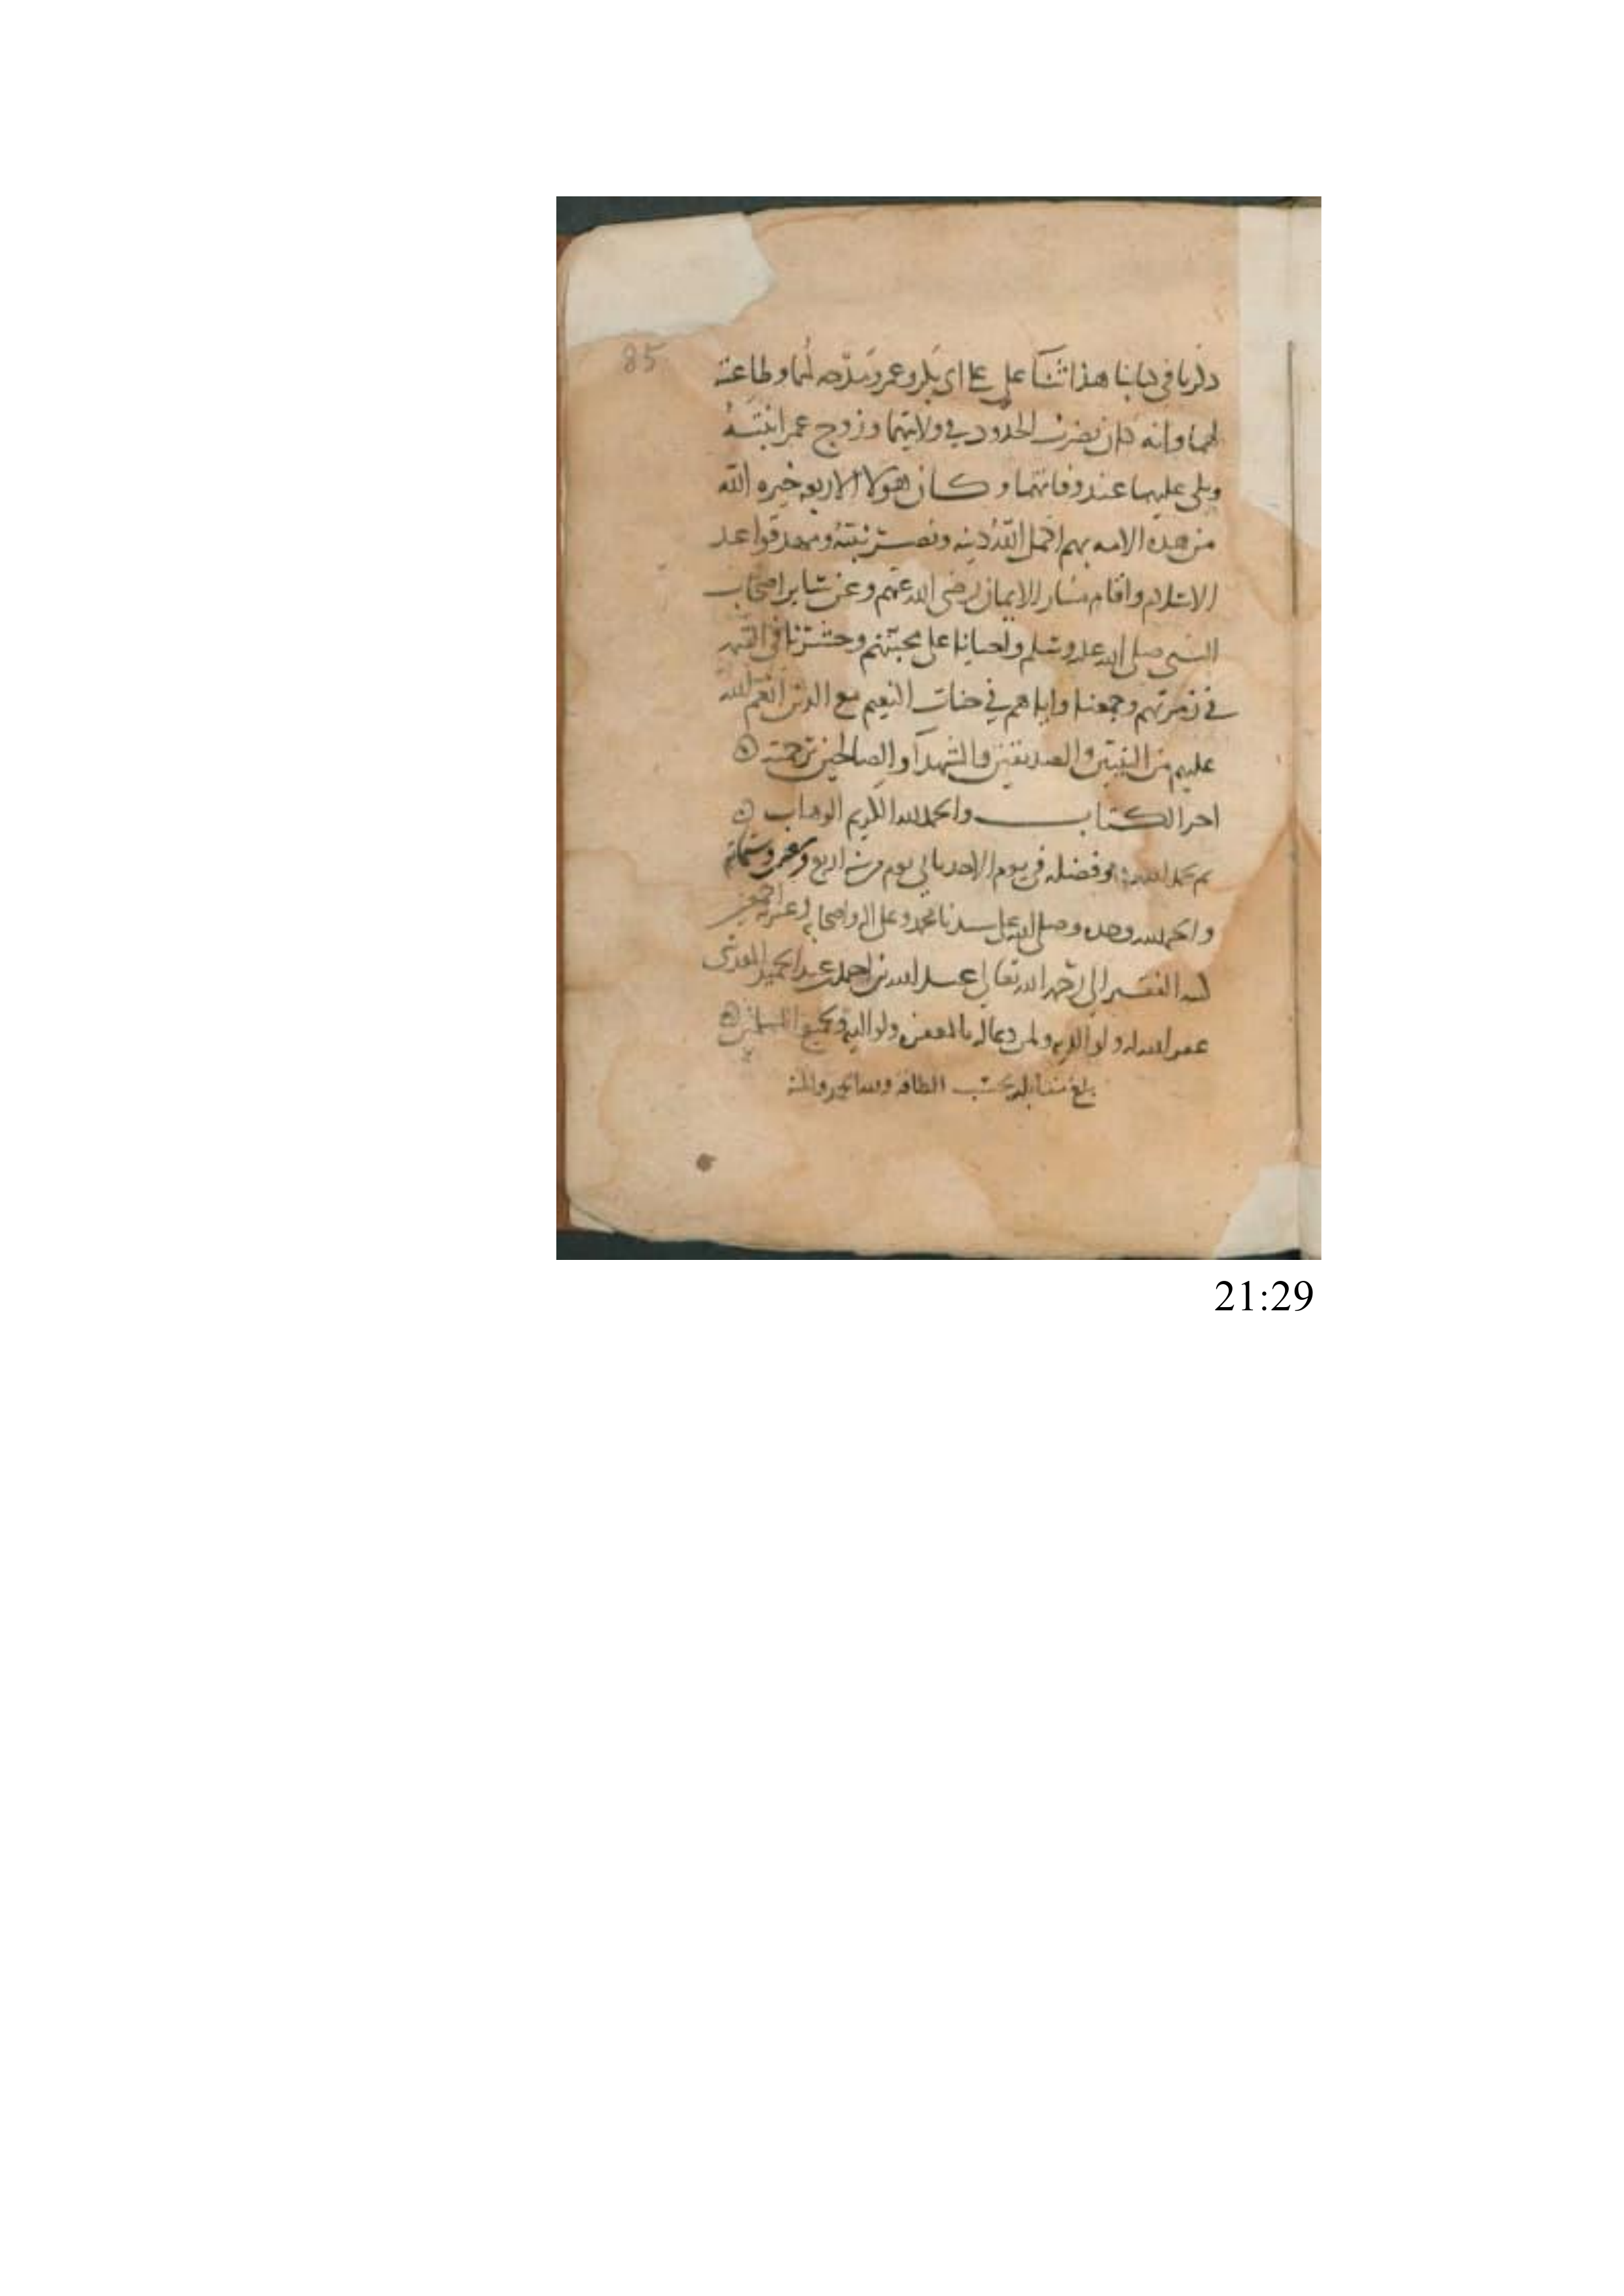 85
ذكرنا في كتابنا هذا ثنآ على على ابى بكر وعمر ومدحه لهما وطاعته
لهما وانه كان يضرب الحدود في ولايتهما وزوج عمر ابنته
وبكى عليهما عند وفاتهما وكان هولا الاربعه خيره الله
من هذه الامه بهم اكمل الله دينه ونصر نبيه ومهد قواعد
الاسلام واقام منار الايمان رضى الله عنهم وعن ساير اصحاب
النبى صلى الله عليه وسلم واحيانا على محبتهم وحشرنا في
في زمرتهم وجمعنا واياهم في جنات النعيم مع الذين انعم الله
عليهم من النبيين والصديقين والشهدآ والصالحين برحمته
اخر الكتاب والحمد لله الكريم الوهاب
تم بحمد الله وفضله في يوم الاحد يوم من سنه اربع وستمائة
والحمد لله وحده وصلى الله على سيدنا محمد وعلى اله واصحابه اجمعين
كتبه الفقير الى رحمة الله تعالى عبد الله بن احمد بن عبد الحميد المقدسى
غفر الله له ولوالديه ولمن دعا له بالمغفره ولوالديه ولجميع المسلمين
بلغ مقابله بحسب الطاقه ولله الحمد والمنه
21:29